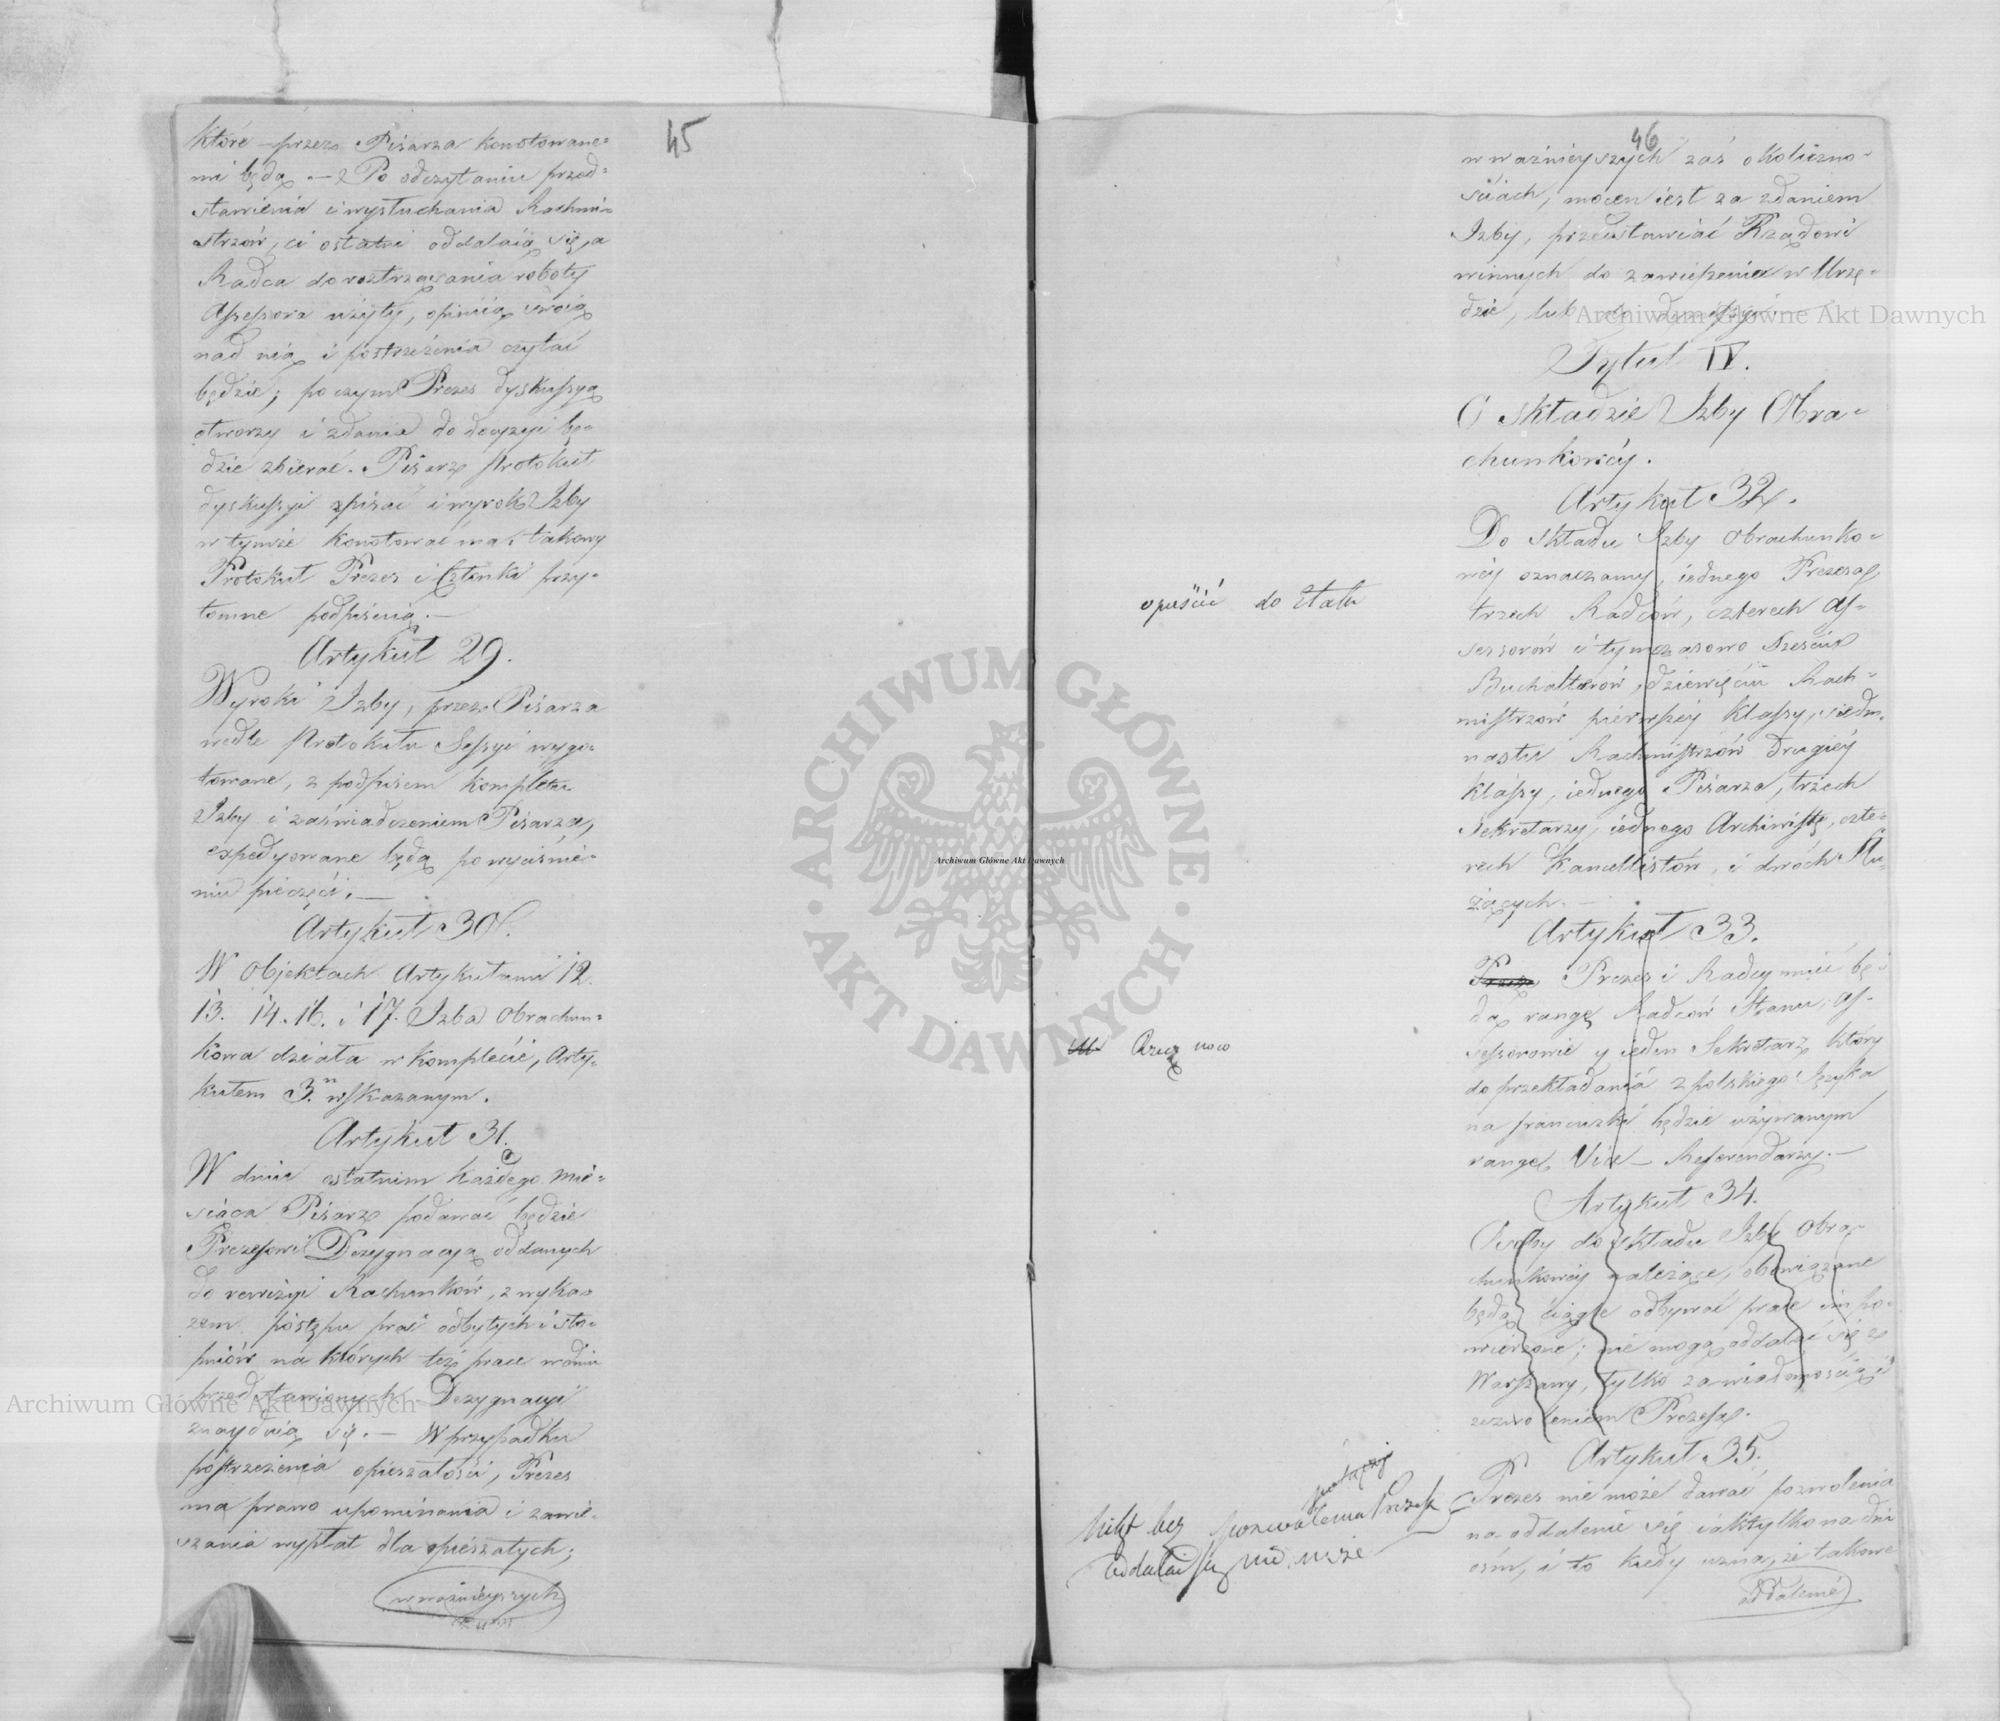 45
które przez Pisarza konotowane-
mi będą. — Po odczytaniu przed-
stawienia i wysłuchania Rachmi-
strzów, ci ostatni oddalaią się, a
Radca do roztrząsania roboty
Assessora użyty, opiniią swoią
nad nią i postrzeżenia czytać
będzie; poczym Prezes dyskussyą
otworzy i zdania do decyzyi bę-
dzie zbierać. Pisarz Protokuł
dyskussyi spisać i wyrok Izby
w tymże konotować ma, takowy
Protokuł Prezes i Członki przy-
tomne podpisuią. —
Artykuł 29.
Wyroki Izby, przez Pisarza
wedle Protokułu Sessyi wygo-
towane, z podpisem kompletu
Izby i zaświadczeniem Pisarza,
expedyowane będą po wyciśnie-
niu pieczęci. —
Artykuł 30.
W Objektach Artykułami 12.
13. 14. 16. i 17. Izba Obrachun-
kowa działa w komplecie, Arty-
kułem 3. wskazanym.
Artykuł 31.
W dniu ostatnim każdego mie-
siąca Pisarz podawać będzie
Prezesowi Dezygnacyą oddanych
do rewizyi Rachunków, z wyka-
zem postępu prac odbytych i sto-
pniów na których też prace w dniu
przedstawionych Dezygnacyi
znayduią się. — W przypadku
postrzeżenia opieszałości, Prezes
ma prawo upominania i zawie-
szania wypłat dla opieszałych;
w ważnieyszych
46
w ważnieyszych zaś okoliczno-
ściach, mocen iest za zdaniem
Izby, przedstawiać Rządowi
winnych do zawieszenia w Urzę-
dzie, lub do dymissyi. —
Tytuł IV.
O składzie Izby Obra-
chunkowéy.
Artykuł 32.
Do składu Izby Obrachunko-
wéy oznaczamy, iednego Prezesa,
trzech Radców, czterech As-
sessorów i tymczasowo sześciu
Buchalterów, dziewięciu Rach-
mistrzów pierwszéy klassy, siedm-
nastu Rachmistrzów drugiéy
klassy, iednego Pisarza, trzech
Sekretarzy, iednego Archiwistę, czte-
rech Kancellistów, i dwóch Słu-
żących. —
opuścić do etatu
Artykuł 33.
Prezes i Radcy mieć bę-
dą rangę Radców Stanu, As-
sessorowie y ieden Sekretarz który
do przekładania z polskiego Języka
na francuski będzie używanym
rangę Vice — Referendarzy. —
Artykuł 34.
Osoby do składu Izby Obra-
chunkowéy należące, obowiązane
będą ciągle odbywać prace im po-
wierzone; nie mogą oddalać się z
Warszawy, tylko za wiadomością i
zezwoleniem Prezesa.
Artykuł 35.
Prezes nie może dawać pozwolenia
na oddalenie się iak tylko na dni
ośm, i to kiedy uzna, że takowe
oddalenié
Nikt bez pozwolenia Prezesa
oddalać się nie może
Archiwum Główne Akt Dawnych
Archiwum Główne Akt Dawnych
Archiwum Główne Akt Dawnych
ARCHIWUM GŁÓWNE · AKT DAWNYCH ·